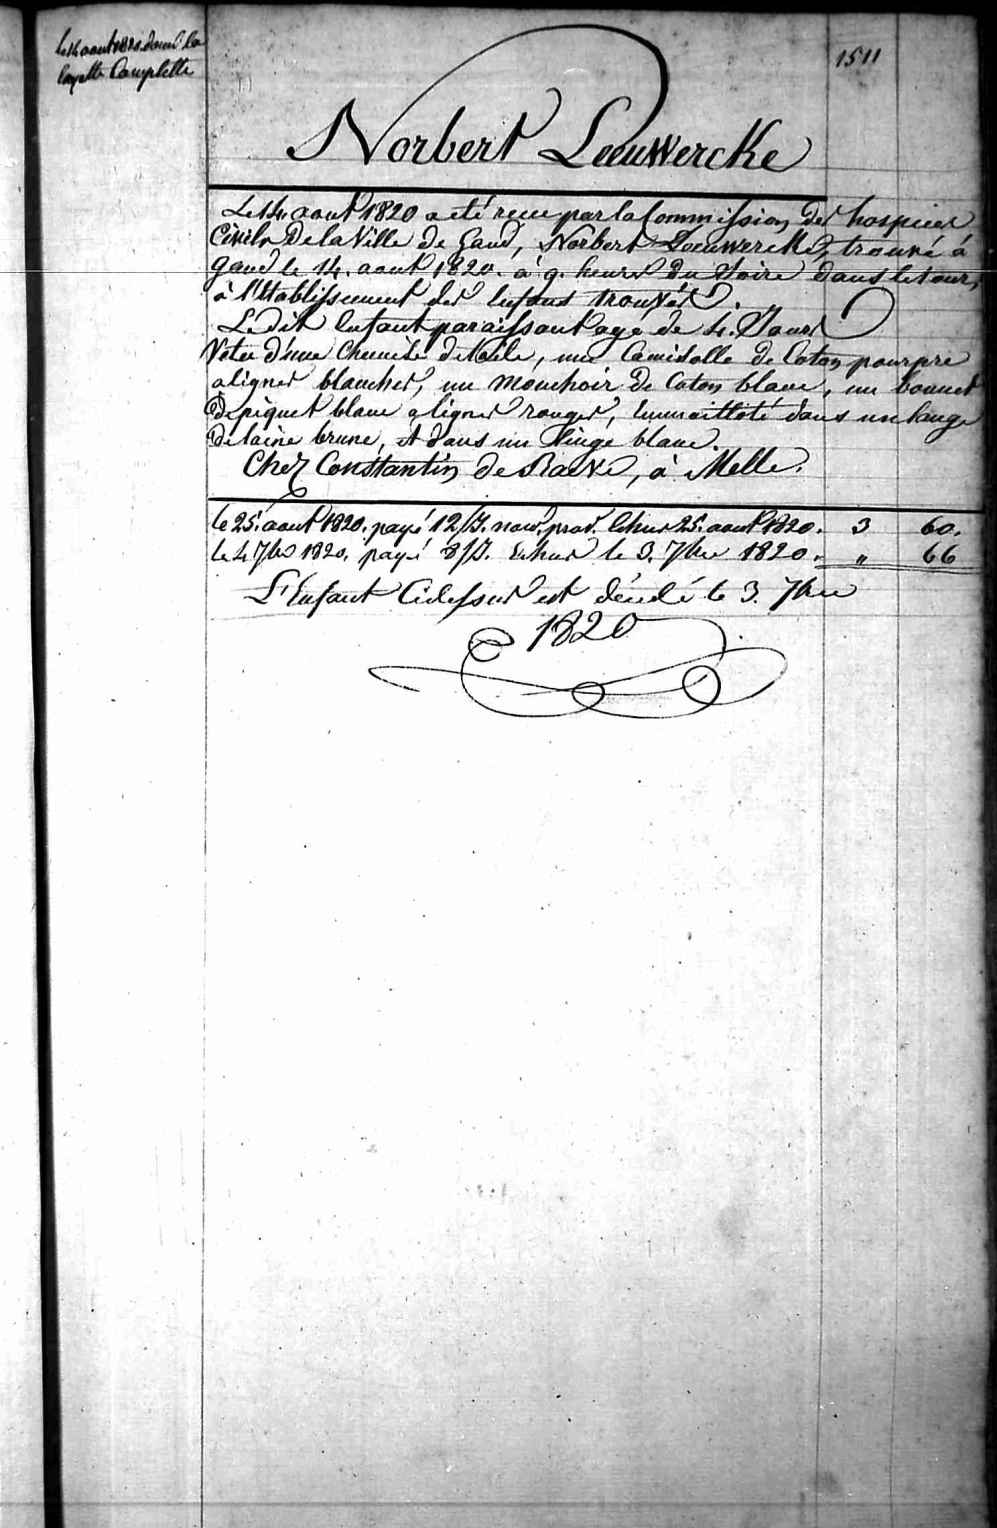 le 14 aout 1820 donné la
layette Complette
1511
Norbert Leeuwercke
Le 14. aout 1820 a eté recu par la Commission des hospices
Civils De la Ville de Gand, Norbert Leeuwercke, trouvé à
gand le 14. aout 1820. à 9. heures du Soire dans le tour,
à l'Etablissement des Enfans trouvés.
Le dit Enfant paraissant agé de 4. Jours
Vetu d'une Chemise de toile, une Camisolle de Coton pourpre
a lignes blanches, un mouchoir de Coton blanc, un bonnet
De piquet blanc a lignes rouges, Emmailloté dans un lange
De laine brune, et dans un linge blanc.
Chez Constantin de Raeve, à Melle.
le 25. aout 1820. payé 12/J. nouv. prod. Echus 25. aout 1820. 3 60.
le 4 7bre 1820. payé 8/J. Echus le 3. 7bre 1820. " 66
L'Enfant Cidessus est décédé le 3. 7bre
1820